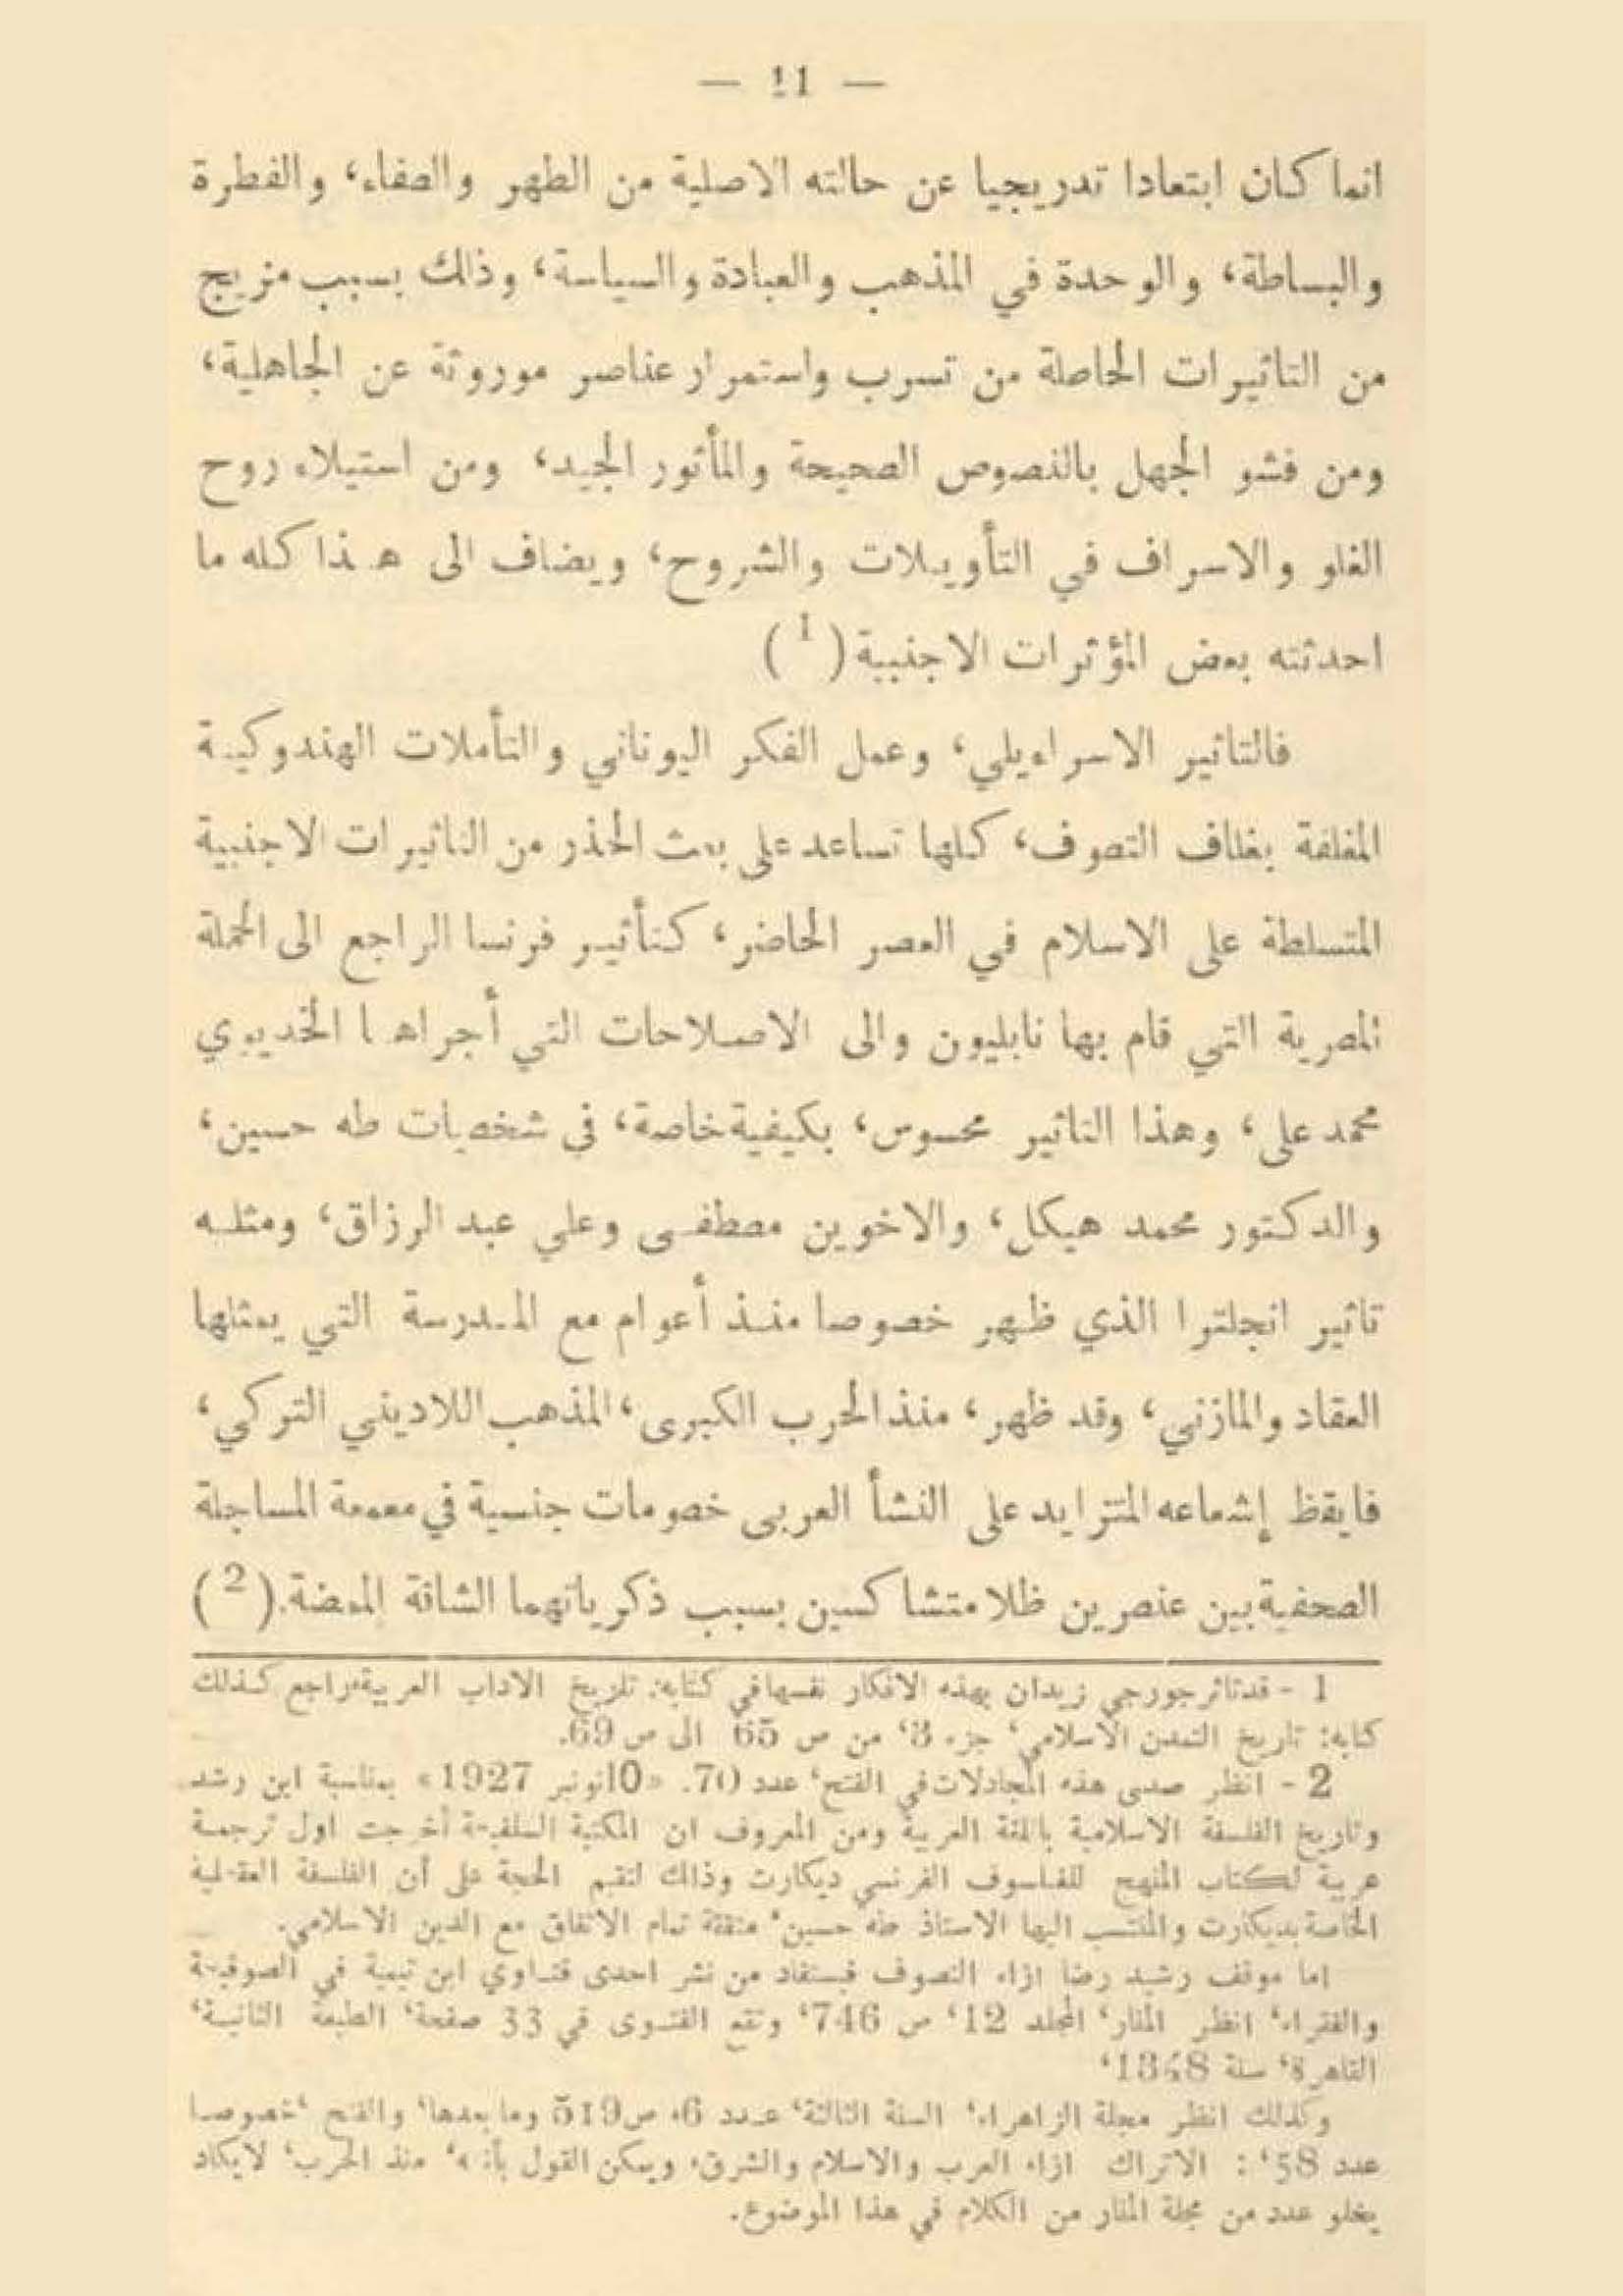 — 11 —
انما كان ابتعادا تدريجيا عن حالته الاصلية من الطهر والصفاء، والفطرة
والبساطة، والوحدة في المذهب والعبادة والسياسة، وذلك بسبب مزيج
من التاثيرات الحاصلة من تسرب واستمرار عناصر موروثة عن الجاهلية،
ومن فشو الجهل بالنصوص الصحيحة والمأثور الجيد، ومن استيلاء روح
الغلو والاسراف في التأويلات والشروح، ويضاف الى هذا كله ما
احدثته بعض المؤثرات الاجنبية (1)
فالتاثير الاسراءيلي، وعمل الفكر اليوناني والتأملات الهندوكية
المغلفة بغلاف التصوف، كلها تساعد على بعث الحذر من التاثيرات الاجنبية
المتسلطة على الاسلام في العصر الحاضر، كتأثير فرنسا الراجع الى الحملة
المصرية التي قام بها نابليون والى الاصلاحات التي أجراها الخديوي
محمد على، وهذا التاثير محسوس، بكيفية خاصة، في شخصيات طه حسين،
والدكتور محمد هيكل، والاخوين مصطفى وعلي عبد الرزاق، ومثله
تاثير انجلترا الذي ظهر خصوصا منذ أعوام مع المدرسة التي يمثلها
العقاد والمازني، وقد ظهر، منذ الحرب الكبرى، المذهب اللاديني التركي،
فايقظ إشعاعه المتزايد على النشأ العربى خصومات جنسية في معمعة المساجلة
الصحفية بين عنصرين ظلا متشاكسين بسبب ذكرياتهما الشاقة الممضة. (2)
1 - قد تاثر جورجي زيدان بهذه الافكار نفسها في كتابه: تاريخ الاداب العربية، راجع كذلك
كتابه: تاريخ التمدن الاسلامي، جزء 3، من ص 65 الى ص 69.
2 - انظر صدى هذه المجادلات في الفتح، عدد 70. «10 نونبر 1927» بمناسبة ابن رشد
وتاريخ الفلسفة الاسلامية باللغة العربية ومن المعروف ان المكتبة السلفية أخرجت اول ترجمة
عربية لكتاب المنهج للفيلسوف الفرنسي ديكارت وذالك لتقيم الحجة على أن الفلسفة العقلية
الخاصة بديكارت والمنتسب اليها الاستاذ طه حسين، متفقة تمام الاتفاق مع الدين الاسلامي.
اما موقف رشيد رضا ازاء التصوف فيستفاد من نشر احدى فتاوي ابن تيمية في الصوفية
والفقراء، انظر المنار، المجلد 12، ص 746، وتقع الفتوى في 33 صفحة، الطبعة الثانية،
القاهرة، سنة 1348،
وكذلك انظر مجلة الزاهراء، السنة الثالثة، عدد 6، ص 519 وما بعدها، والفتح، خصوصا
عدد 58، : الاتراك ازاء العرب والاسلام والشرق، ويمكن القول بأنه، منذ الحرب، لايكاد
يخلو عدد من مجلة المنار من الكلام في هذا الموضوع.